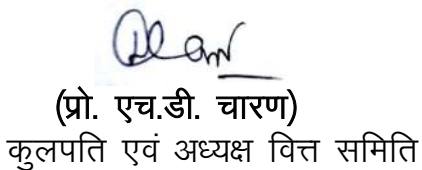 (प्रो. एच.डी. चारण)
कुलपति एवं अध्यक्ष वित्त समिति